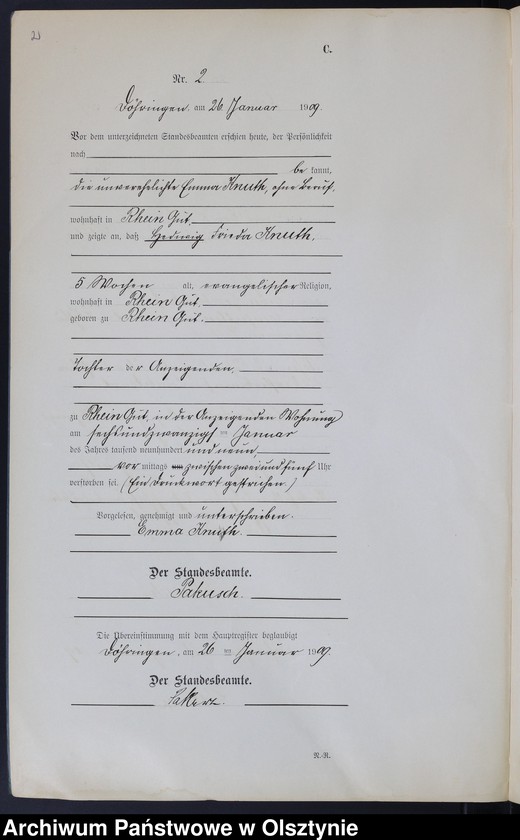 23
C.
Nr. 2
Döhringen, am 26. Januar 1909.
Vor dem unterzeichneten Standesbeamten erschien heute, der Persönlichkeit
nach
be kannt,
die unverehelichte Emma Knuth, ohne Beruf,
wohnhaft in Rhein Gut,
und zeigte an, daß Hedwig Frieda Knuth,
5 Wochen alt, evangelischer Religion,
wohnhaft in Rhein Gut,
geboren zu Rhein Gut.
Tochter der Anzeigenden,
zu Rhein Gut, in der Anzeigenden Wohnung
am sechsundzwanzigsten Januar
des Jahres tausend neunhundert und neun,
vor mittags um zwischen zwei und fünf Uhr
verstorben sei. (Ein Druckwort gestrichen.)
Vorgelesen, genehmigt und unterschrieben.
Emma Knuth.
Der Standesbeamte.
Pakusch.
Die Übereinstimmung mit dem Hauptregister beglaubigt
Döhringen, am 26 ten Januar 1909.
Der Standesbeamte.
N.-R.
Archiwum Państwowe w Olsztynie